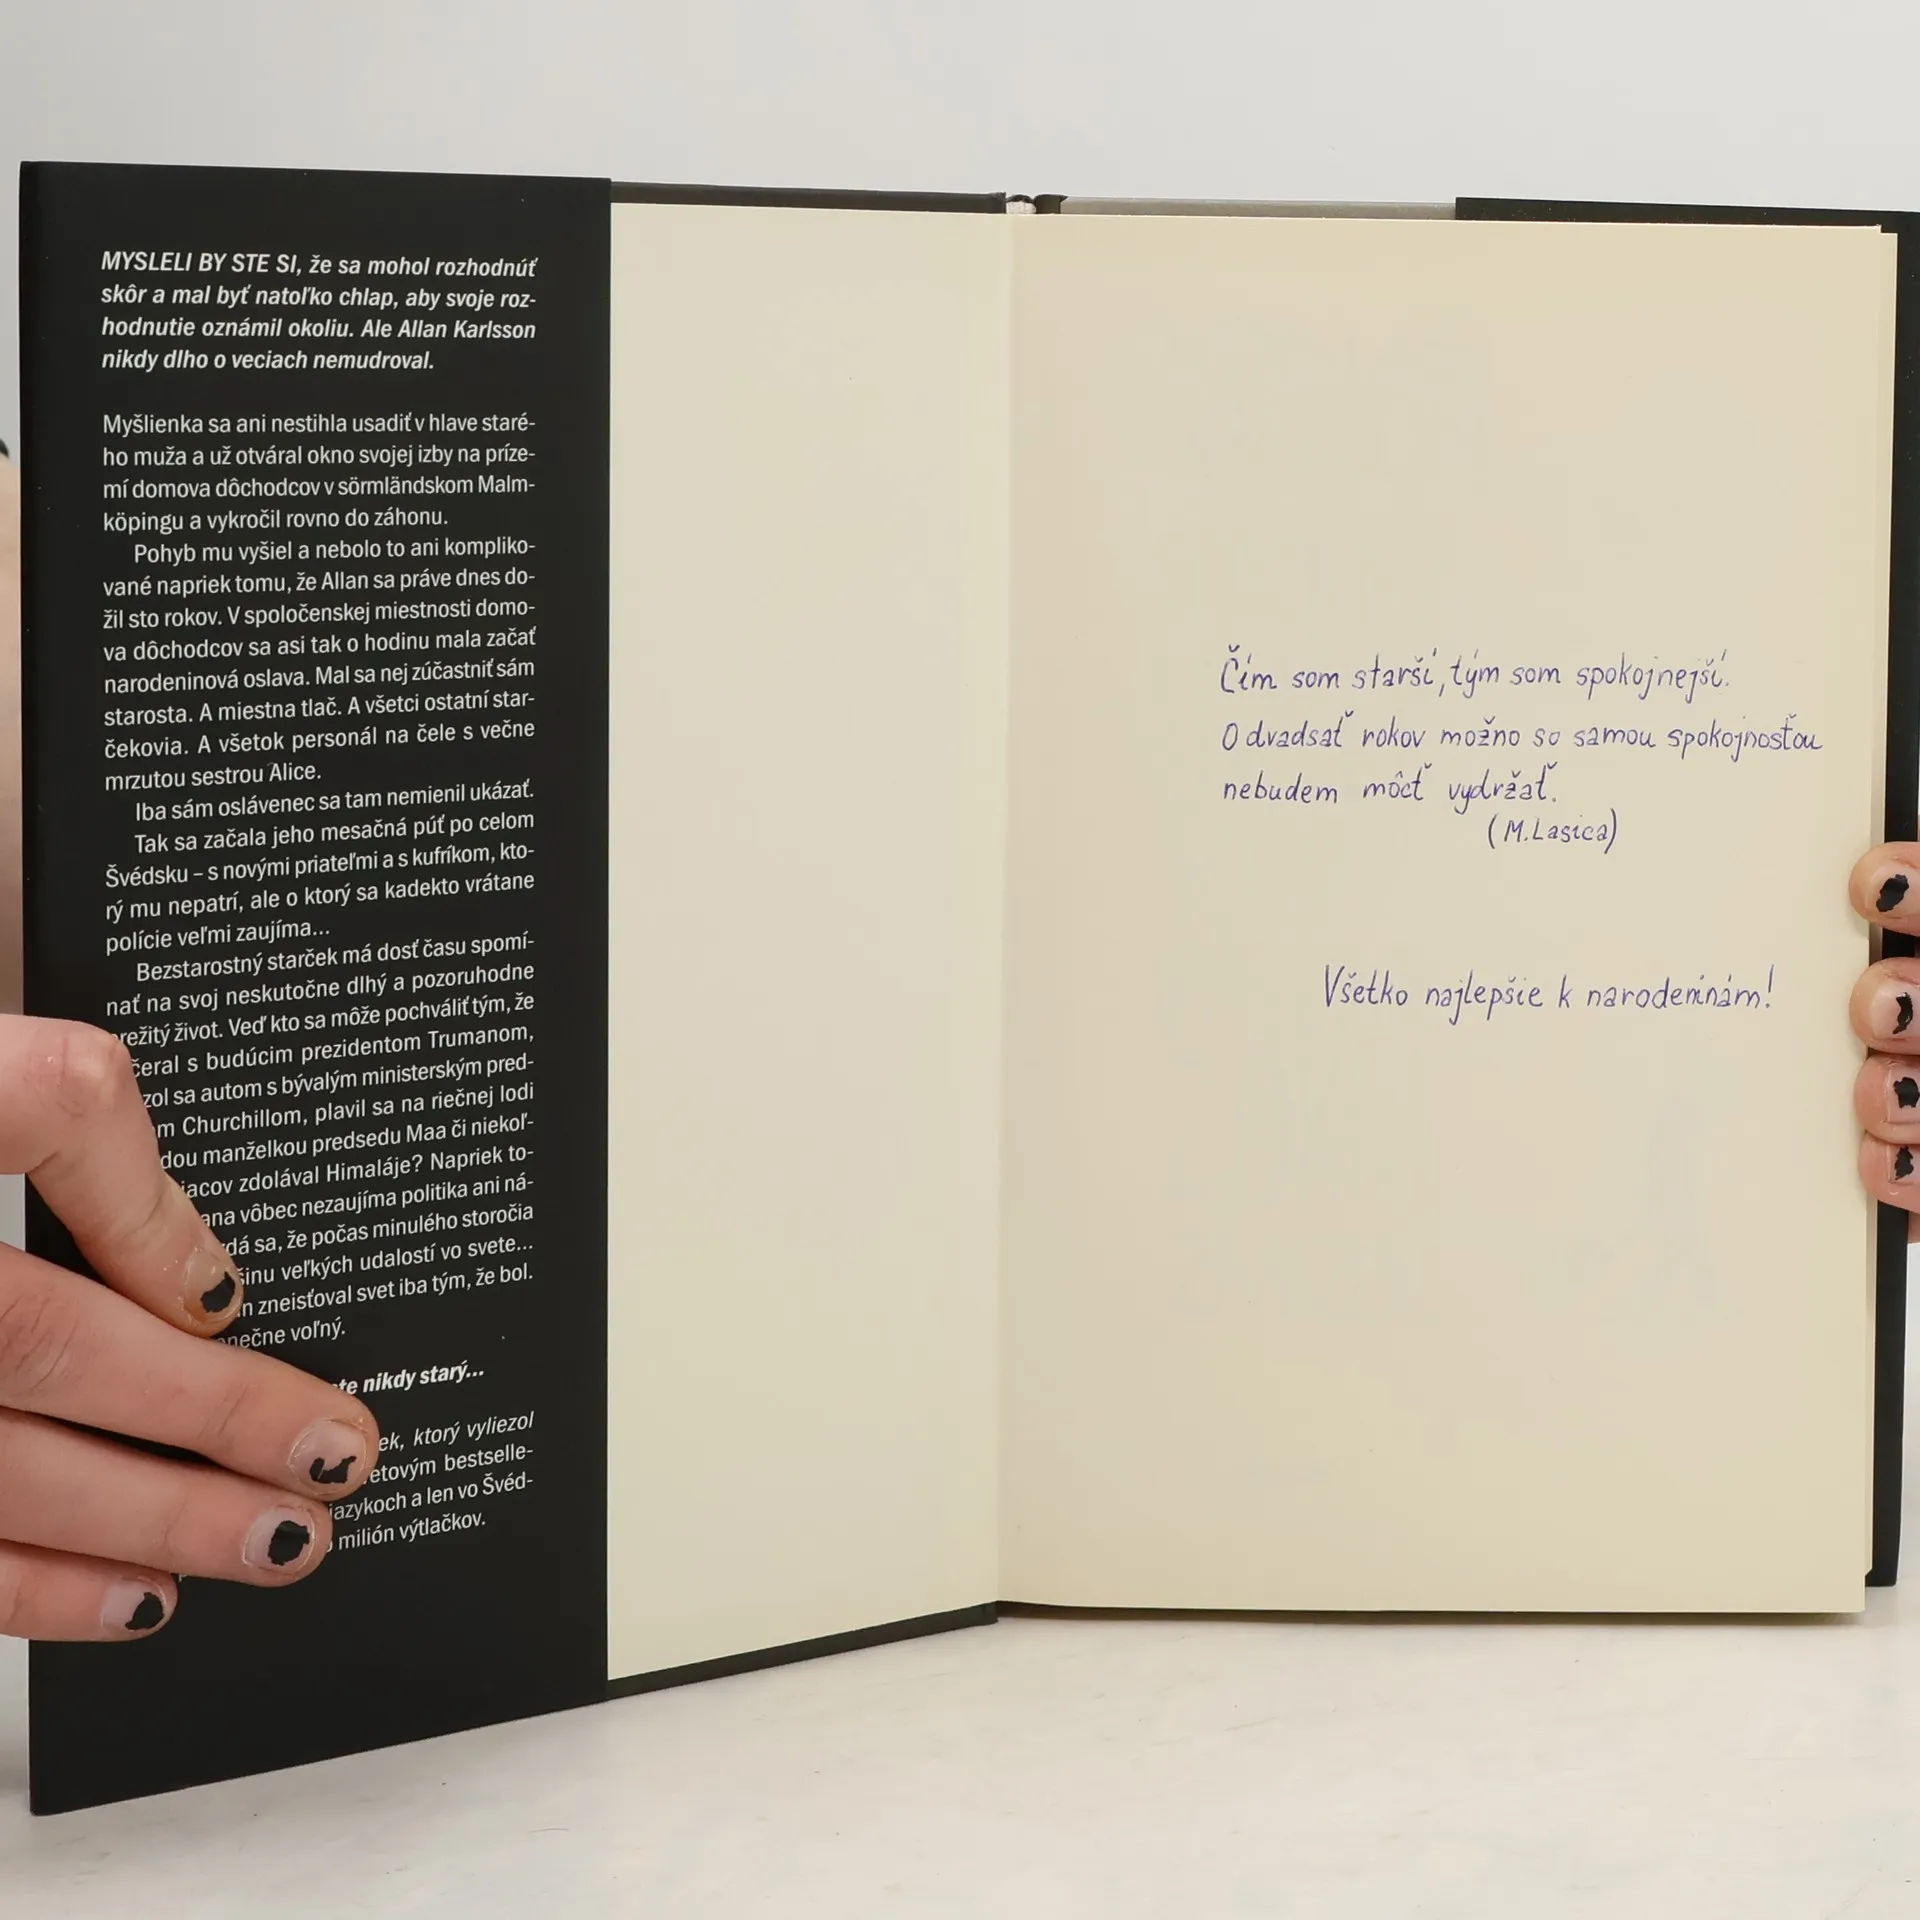 MYSLELI BY STE SI, že sa mohol rozhodnúť
skôr a mal byť natoľko chlap, aby svoje roz-
hodnutie oznámil okoliu. Ale Allan Karlsson
nikdy dlho o veciach nemudroval.
Myšlienka sa ani nestihla usadiť v hlave staré-
ho muža a už otváral okno svojej izby na príze-
mí domova dôchodcov v sörmländskom Malm-
köpingu a vykročil rovno do záhonu.
Pohyb mu vyšiel a nebolo to ani kompliko-
vané napriek tomu, že Allan sa práve dnes do-
žil sto rokov. V spoločenskej miestnosti domo-
va dôchodcov sa asi tak o hodinu mala začať
narodeninová oslava. Mal sa nej zúčastniť sám
starosta. A miestna tlač. A všetci ostatní star-
čekovia. A všetok personál na čele s večne
mrzutou sestrou Alice.
Iba sám oslávenec sa tam nemienil ukázať.
Tak sa začala jeho mesačná púť po celom
Švédsku – s novými priateľmi a s kufríkom, kto-
rý mu nepatrí, ale o ktorý sa kadekto vrátane
polície veľmi zaujíma...
Bezstarostný starček má dosť času spomí-
nať na svoj neskutočne dlhý a pozoruhodne
režitý život. Veď kto sa môže pochváliť tým, že
čeral s budúcim prezidentom Trumanom,
zol sa autom s bývalým ministerským pred-
m Churchillom, plavil sa na riečnej lodi
dou manželkou predsedu Maa či niekoľ-
iacov zdolával Himaláje? Napriek to-
ana vôbec nezaujíma politika ani ná-
dá sa, že počas minulého storočia
šinu veľkých udalostí vo svete...
n zneisťoval svet iba tým, že bol.
nečne voľný.
te nikdy starý...
ek, ktorý vyliezol
etovým bestselle-
jazykoch a len vo Švéd-
milión výtlačkov.
Čím som starší, tým som spokojnejší.
O dvadsať rokov možno so samou spokojnosťou
nebudem môcť vydržať.
(M.Lasica)
Všetko najlepšie k narodeninám!